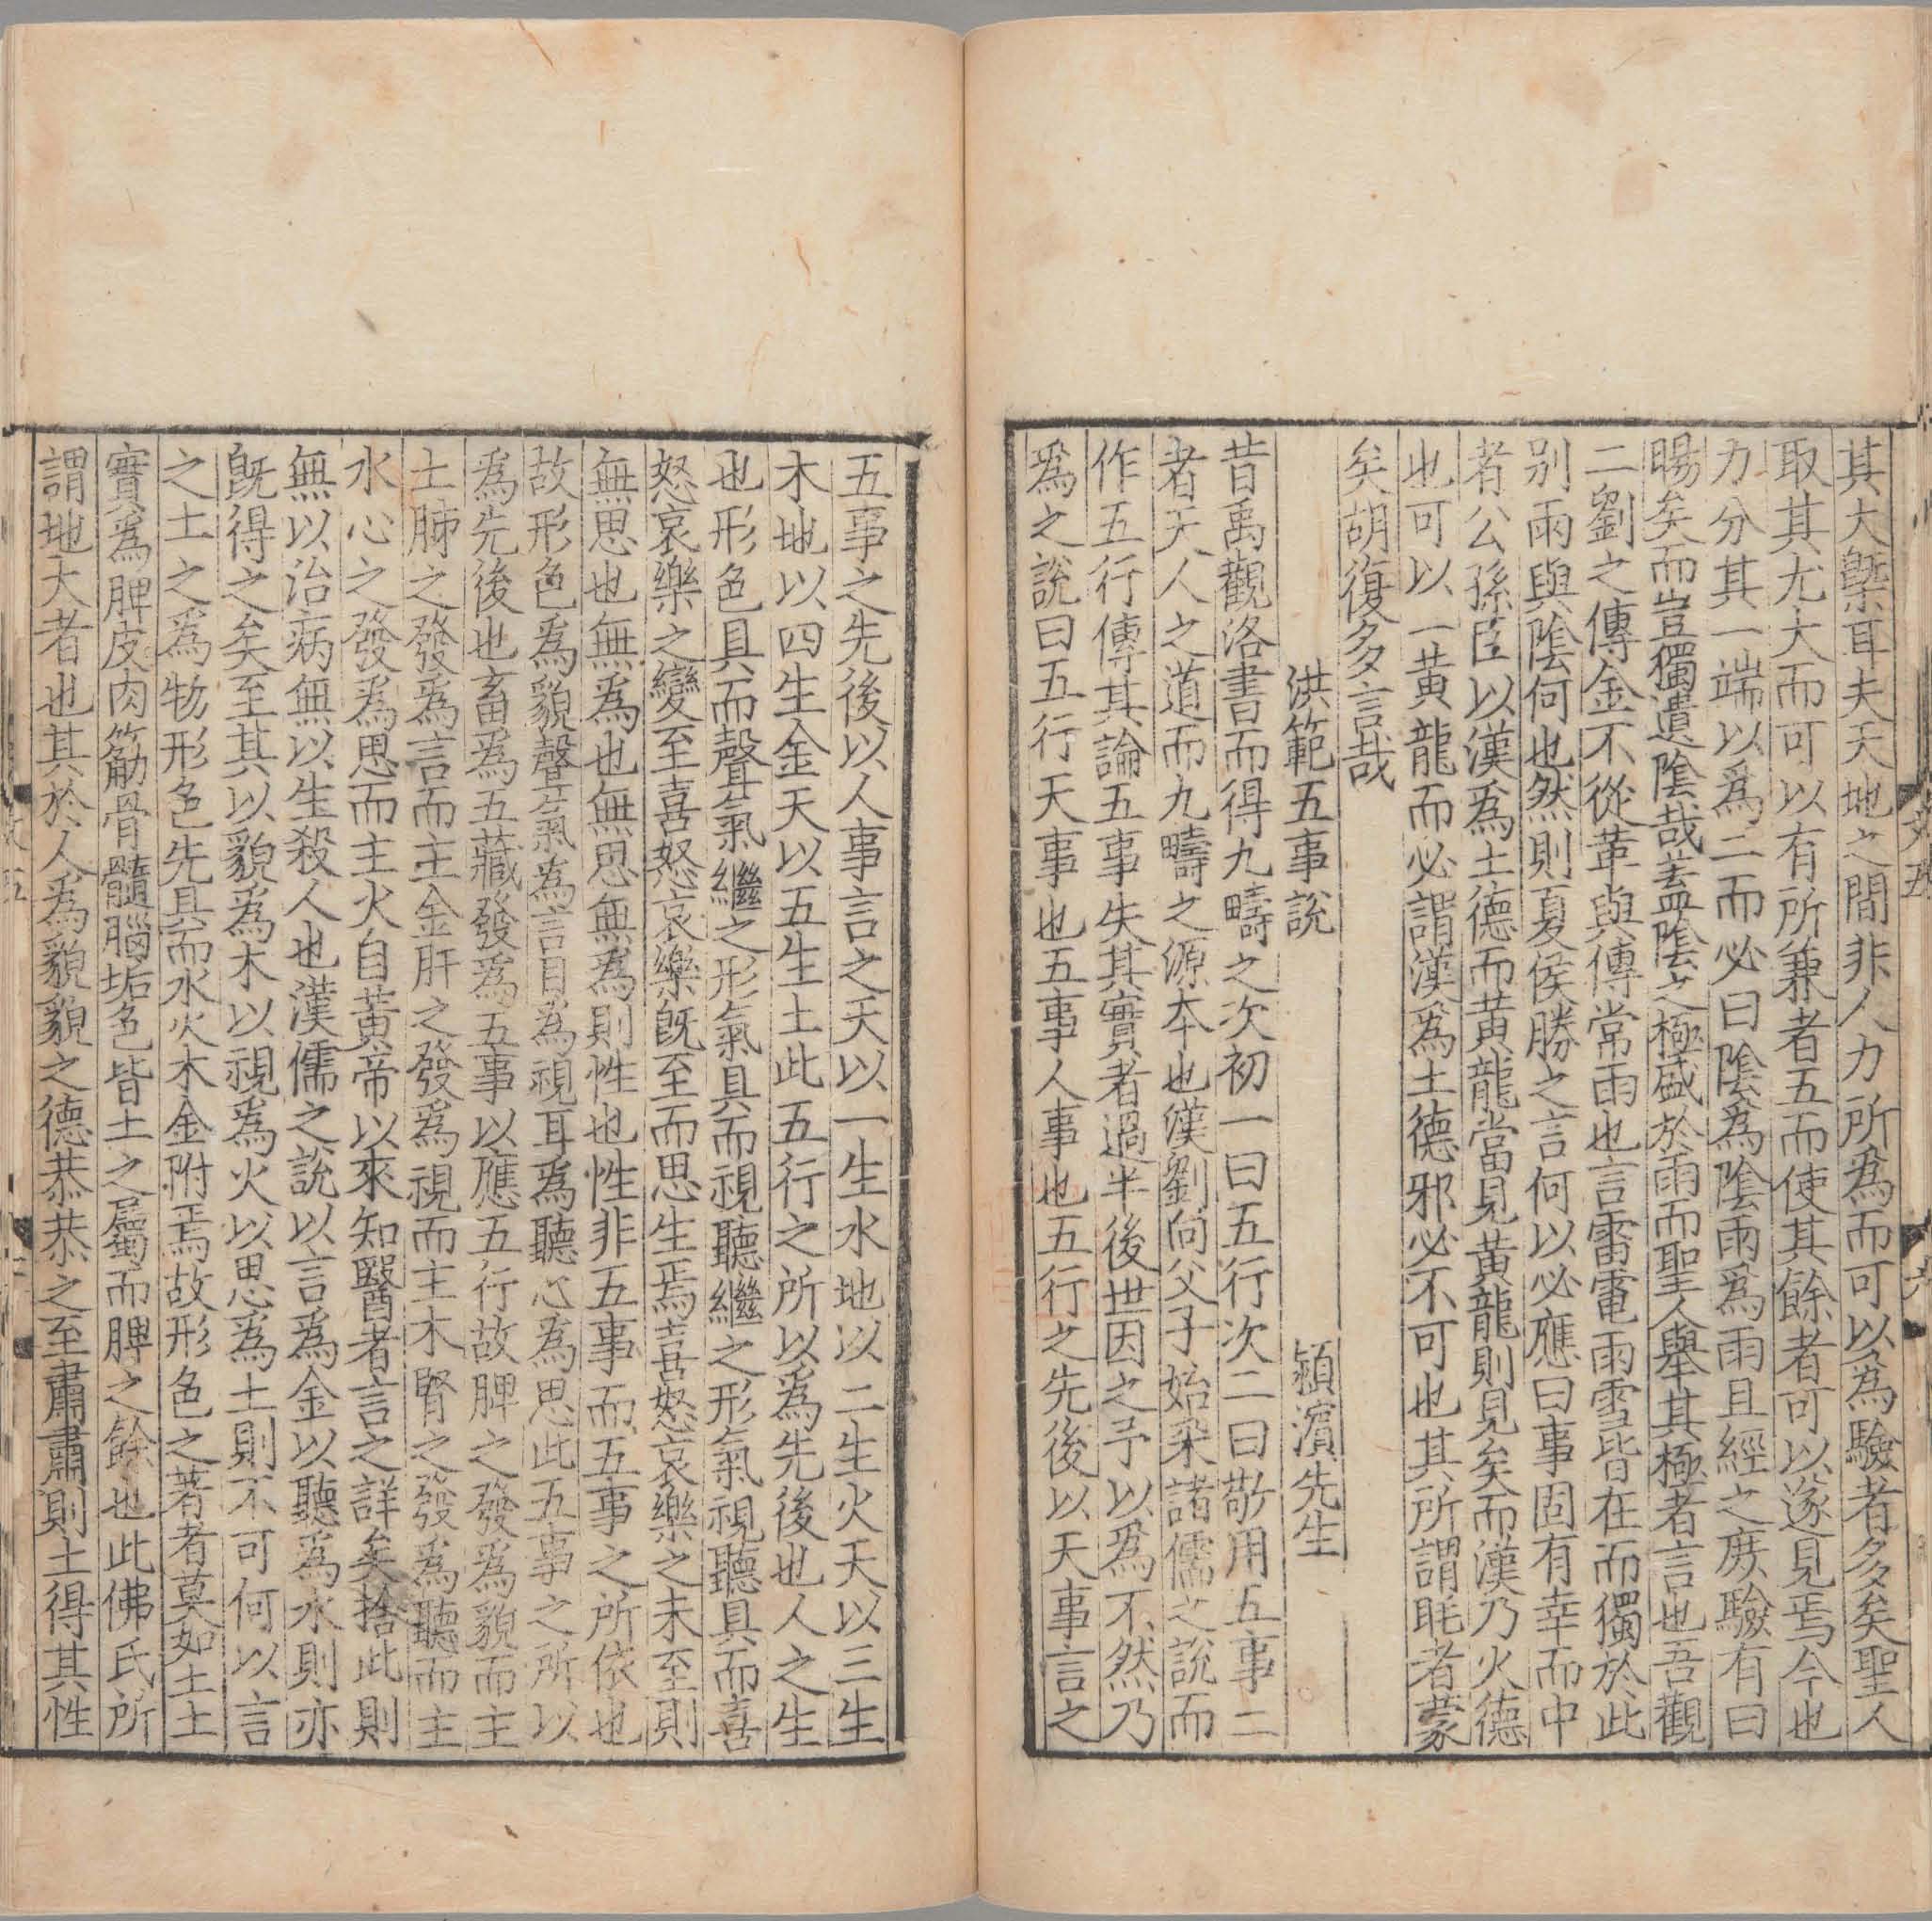 其大槩耳夫天地之間非人力所為而可以為驗者多矣聖人
取其尤大而可以有所兼者五而使其餘者可以遂見焉今也
力分其一端以為二而必曰陰為陰雨為雨且經之庶驗有曰
暘矣而豈獨遺陰哉盖陰之極盛於雨而聖人舉其極者言也吾觀
二劉之傳金不從革與傳常雨也言雷電雨雪皆在而獨於此
别雨與陰何也然則夏侯勝之言何以必應曰事固有幸而中
者公孫臣以漢為土德而黃龍當見黃龍則見矣而漢乃火德
也可以一黃龍而必謂漢為土德邪必不可也其所謂眊者蒙
矣胡復多言哉
洪範五事說 潁濵先生
昔禹觀洛書而得九疇之次初一曰五行次二曰敬用五事二
者天人之道而九疇之源本也漢劉向父子始采諸儒之說而
作五行傳其論五事失其實者過半後世因之予以為不然乃
為之說曰五行天事也五事人事也五行之先後以天事言之
五事之先後以人事言之天以一生水地以二生火天以三生
木地以四生金天以五生土此五行之所以為先後也人之生
也形色具而聲氣繼之形氣具而視聽繼之形氣視聽具而喜
怒哀樂之變至喜怒哀樂旣至而思生焉喜怒哀樂之未至則
無思也無為也無思無為則性也性非五事而五事之所依也
故形色為貌聲氣為言目為視耳為聽心為思此五事之所以
為先後也畜為五藏發為五事以應五行故脾之發為貌而主
土肺之發為言而主金肝之發為視而主木腎之發為聽而主
水心之發為思而主火自黃帝以來知毉者言之詳矣捨此則
無以治病無以生殺人也漢儒之說以言為金以聽為水則亦
旣得之矣至其以貌為木以視為火以思為土則不可何以言
之土之為物形色先具而水火木金附焉故形色之著者莫如土土
實為脾皮肉筋骨髓腦垢色皆土之屬而脾之餘也此佛氏所
謂地大者也其於人為貌貌之德恭恭之至肅肅則土得其性